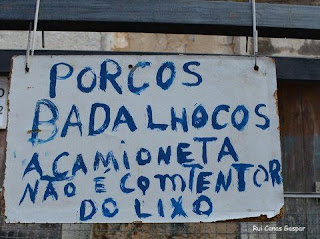 PORCOS
BADALHOCOS
A CAMIONETA
NÃO É COMTENTOR
DO LIXO
Rui Canas Gaspar